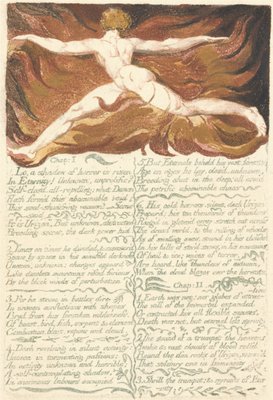 Chap: I
1. Lo, a shadow of horror is risen
In Eternity! Unknown, unprolific!
Self-closd, all-repelling: what Demon
Hath form'd this abominable void
This soul-shudd'ring vacuum? Some said
It is Urizen, But unknown, abstracted
Brooding secret, the dark power hid.
2. Times on times he divided, & measur'd
Space by space in his ninefold darkness
Unseen, unknown! changes appeard
In his desolate mountains rifted furious
By the black winds of perturbation
3. For he strove in battles dire
In unseen conflictions with shapes
Bred from his forsaken wilderness,
Of beast, bird, fish, serpent & element
Combustion, blast, vapour and cloud.
4. Dark revolving in silent activity:
Unseen in tormenting passions;
An activity unknown and horrible;
A self-contemplating shadow,
In enormous labours occupied
5. But Eternals beheld his vast forests
Age on ages he lay, clos'd, unknown,
Brooding shut in the deep; all avoid
The petrific abominable chaos
6. His cold horrors silent, dark Urizen
Prepar'd: his ten thousands of thunders
Rang'd in gloom'd array stretch out across
The dread world, & the rolling of wheels
As of swelling seas, sound in his clouds
In his hills of stor'd snows, in his mountains
Of hail & ice; voices of terror,
Are heard, like thunders of autumn,
When the cloud blazes over the harvests
Chap: II
1. Earth was not: nor globes of attraction
The will of the Immortal expanded
Or contracted his all flexible senses.
Death was not, but eternal life sprung
2. The sound of a trumpet the heavens
Awoke & vast clouds of blood roll'd
Round the dim rocks of Urizen, so nam'd
That solitary one in Immensity
3. Shrill the trumpet: & myriads of Eternity